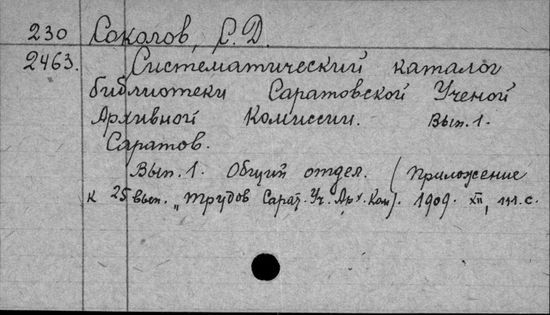 230 Соколов, С. Д.
2463. Систематический каталог
библиотеки Саратовской Ученой
Архивной Комиссии. Вып. 1.
Саратов.
Вып. 1. Общий отдел. (Приложение
к 25 вып. „Трудов Сарат. Уч. Арх. Ком). 1909. XII, 111. с.